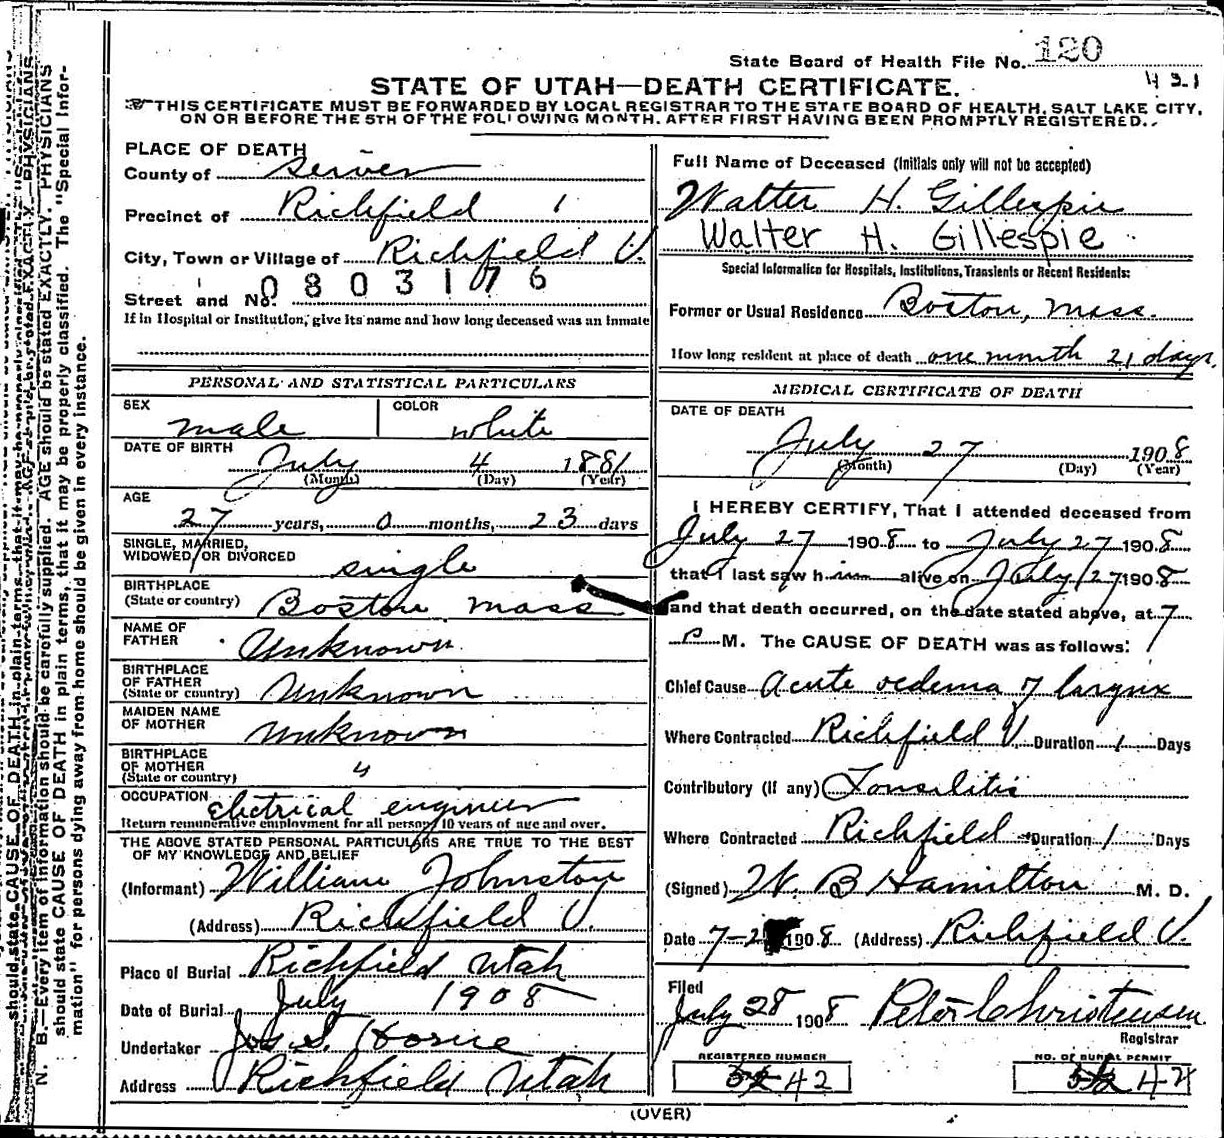 State Board of Health File No. 120
421
STATE OF UTAH—DEATH CERTIFICATE.
THIS CERTIFICATE MUST BE FORWARDED BY LOCAL REGISTRAR TO THE STATE BOARD OF HEALTH, SALT LAKE CITY,
ON OR BEFORE THE 5TH OF THE FOLLOWING MONTH. AFTER FIRST HAVING BEEN PROMPTLY REGISTERED.
PLACE OF DEATH
County of Sevier
Precinct of Richfield 1
City, Town or Village of Richfield U.
0803176
Street and No.
If in Hospital or Institution, give its name and how long deceased was an inmate
PERSONAL AND STATISTICAL PARTICULARS
SEX male COLOR white
DATE OF BIRTH July 4 1881
(Month) (Day) (Year)
AGE
27 years, 0 months, 23 days
SINGLE, MARRIED,
WIDOWED, OR DIVORCED single
BIRTHPLACE
(State or country) Boston mass
NAME OF
FATHER Unknown
BIRTHPLACE
OF FATHER
(State or country) Unknown
MAIDEN NAME
OF MOTHER Unknown
BIRTHPLACE
OF MOTHER
(State or country) "
OCCUPATION electrical engineer
Return remunerative employment for all persons 10 years of age and over.
THE ABOVE STATED PERSONAL PARTICULARS ARE TRUE TO THE BEST
OF MY KNOWLEDGE AND BELIEF
(Informant) William Johnston
(Address) Richfield U.
Place of Burial Richfield Utah
Date of Burial July 1908
Undertaker Jos S. Horne
Address Richfield Utah
Full Name of Deceased (Initials only will not be accepted)
Walter H. Gillespie
Walter H. Gillespie
Special Information for Hospitals, Institutions, Transients or Recent Residents:
Former or Usual Residence Boston, mass.
How long resident at place of death one month 21 days.
MEDICAL CERTIFICATE OF DEATH
DATE OF DEATH
July 27 1908
(Month) (Day) (Year)
I HEREBY CERTIFY, That I attended deceased from
July 27 1908 to July 27 1908
that I last saw him alive on July 27 1908
and that death occurred, on the date stated above, at 7
P M. The CAUSE OF DEATH was as follows:
Chief Cause acute oedema of larynx
Where Contracted Richfield U. Duration 1 Days
Contributory (if any) Tonsilitis
Where Contracted Richfield Duration 1 Days
(Signed) W. B Hamilton M. D.
Date 7-2 1908 (Address) Richfield U.
Filed
July 28 1908 Peter Christensen
Registrar
REGISTERED NUMBER
42
NO. OF BURIAL PERMIT
42
(OVER)
N. B.—Every item of information should be carefully supplied. AGE should be stated EXACTLY. PHYSICIANS
should state CAUSE OF DEATH in plain terms, that it may be properly classified. The "Special Infor-
mation" for persons dying away from home should be given in every instance.